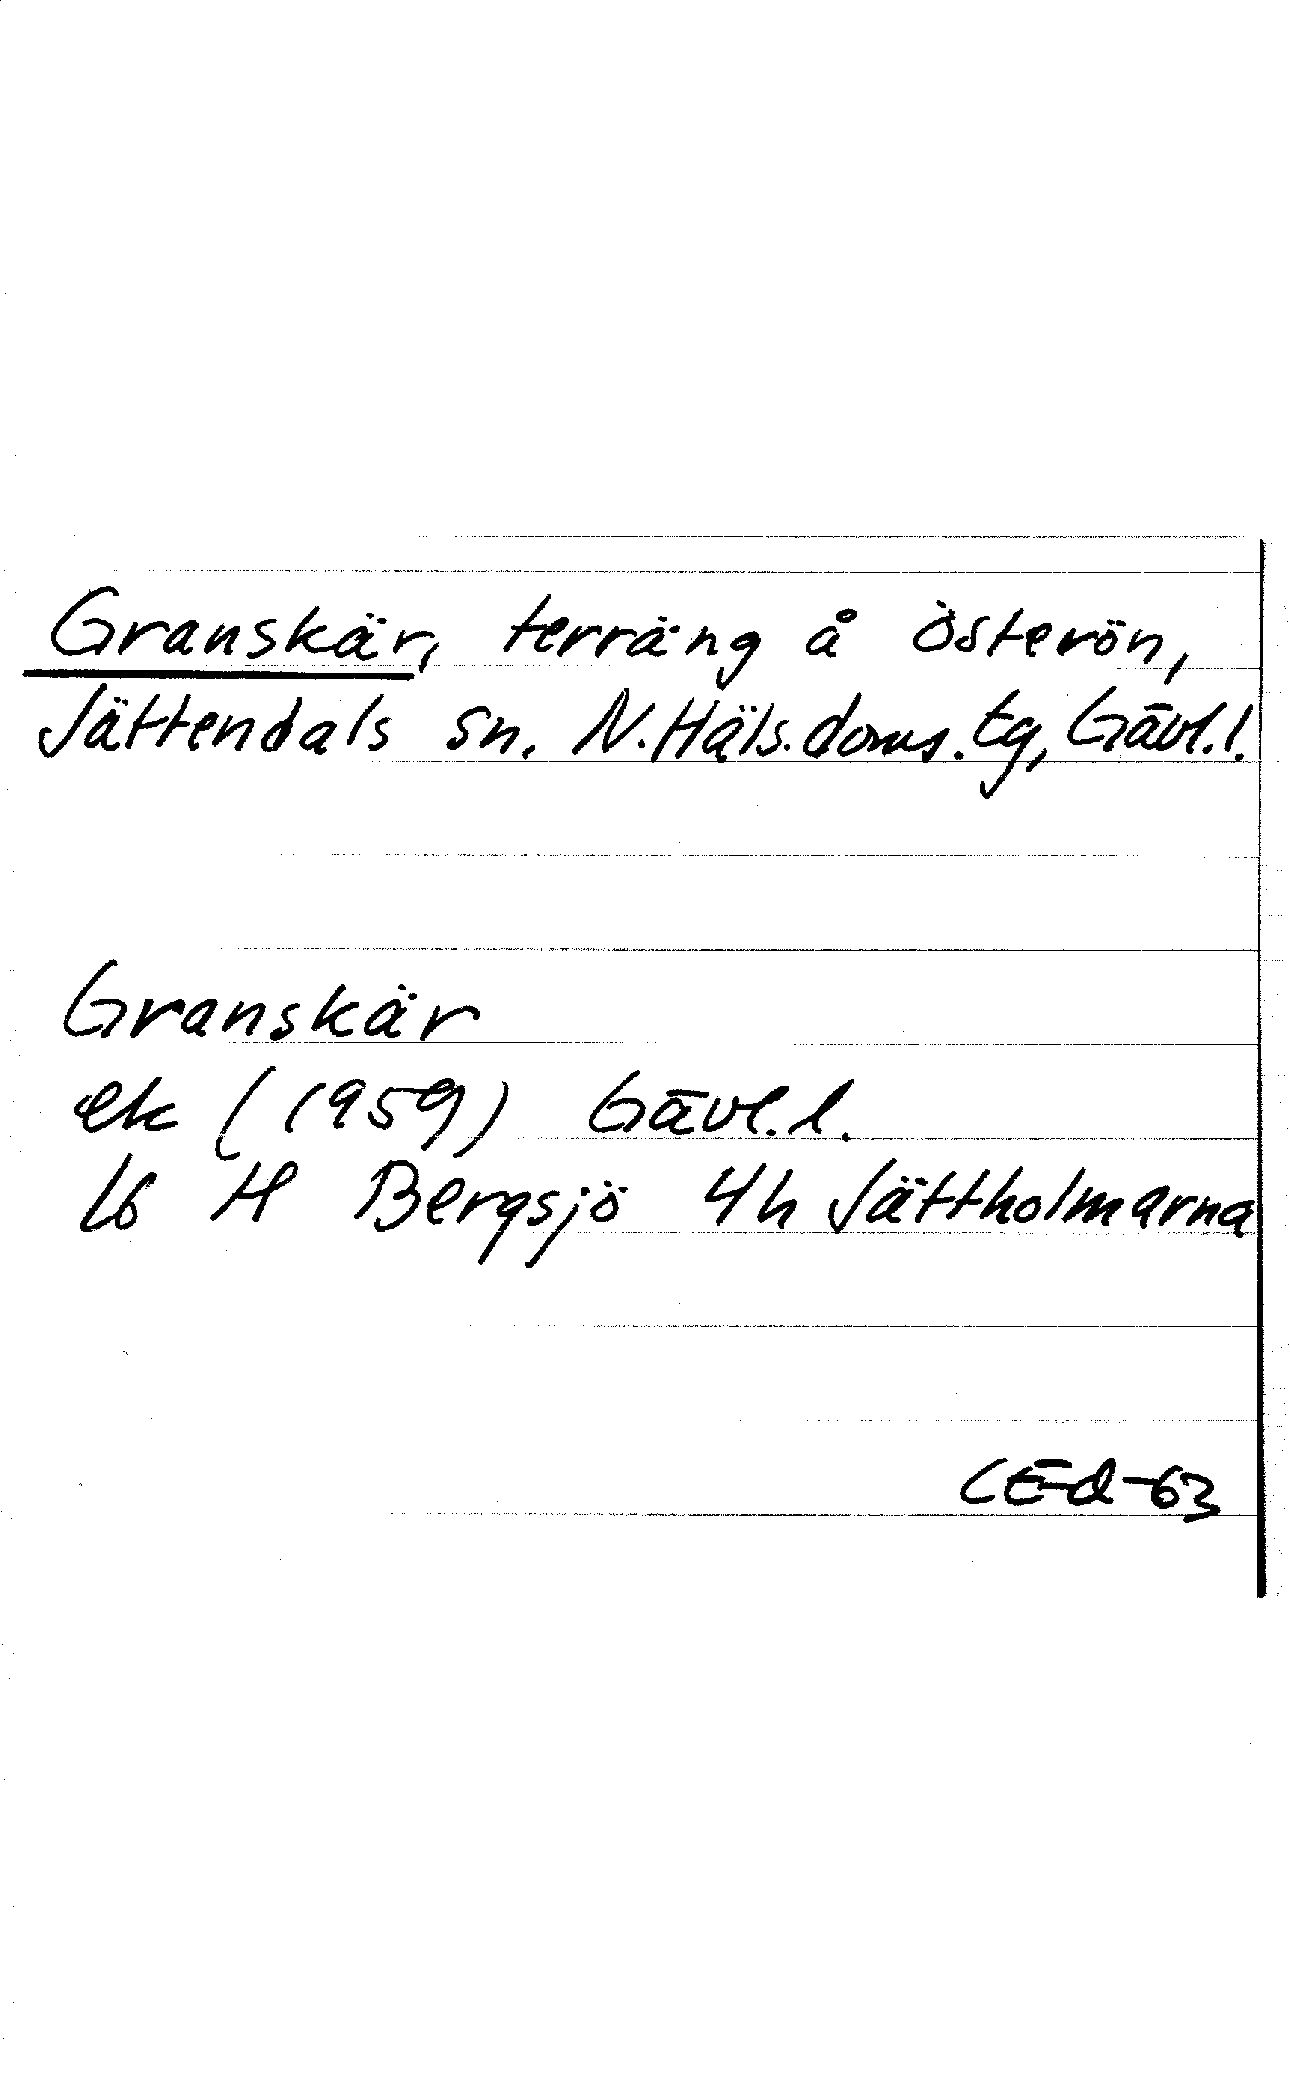 Granskär, terräng å Österön,
Jättendals sn. N. Häls. doms. tg, Gävl. l.
Granskär
ek (1959) Gävl. l.
16 H Bergsjö 4h Jättholmarna
CE-d-63